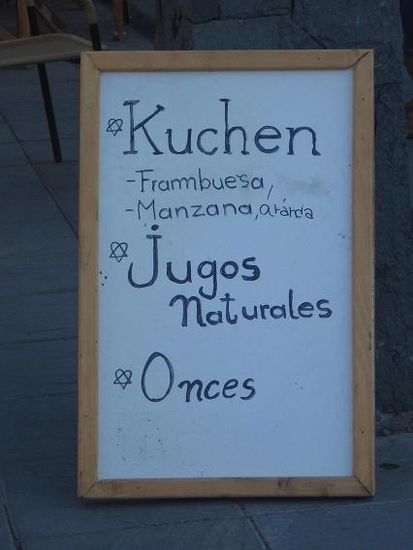 Kuchen
-Frambuesa,
-Manzana,
Jugos
Naturales
Onces